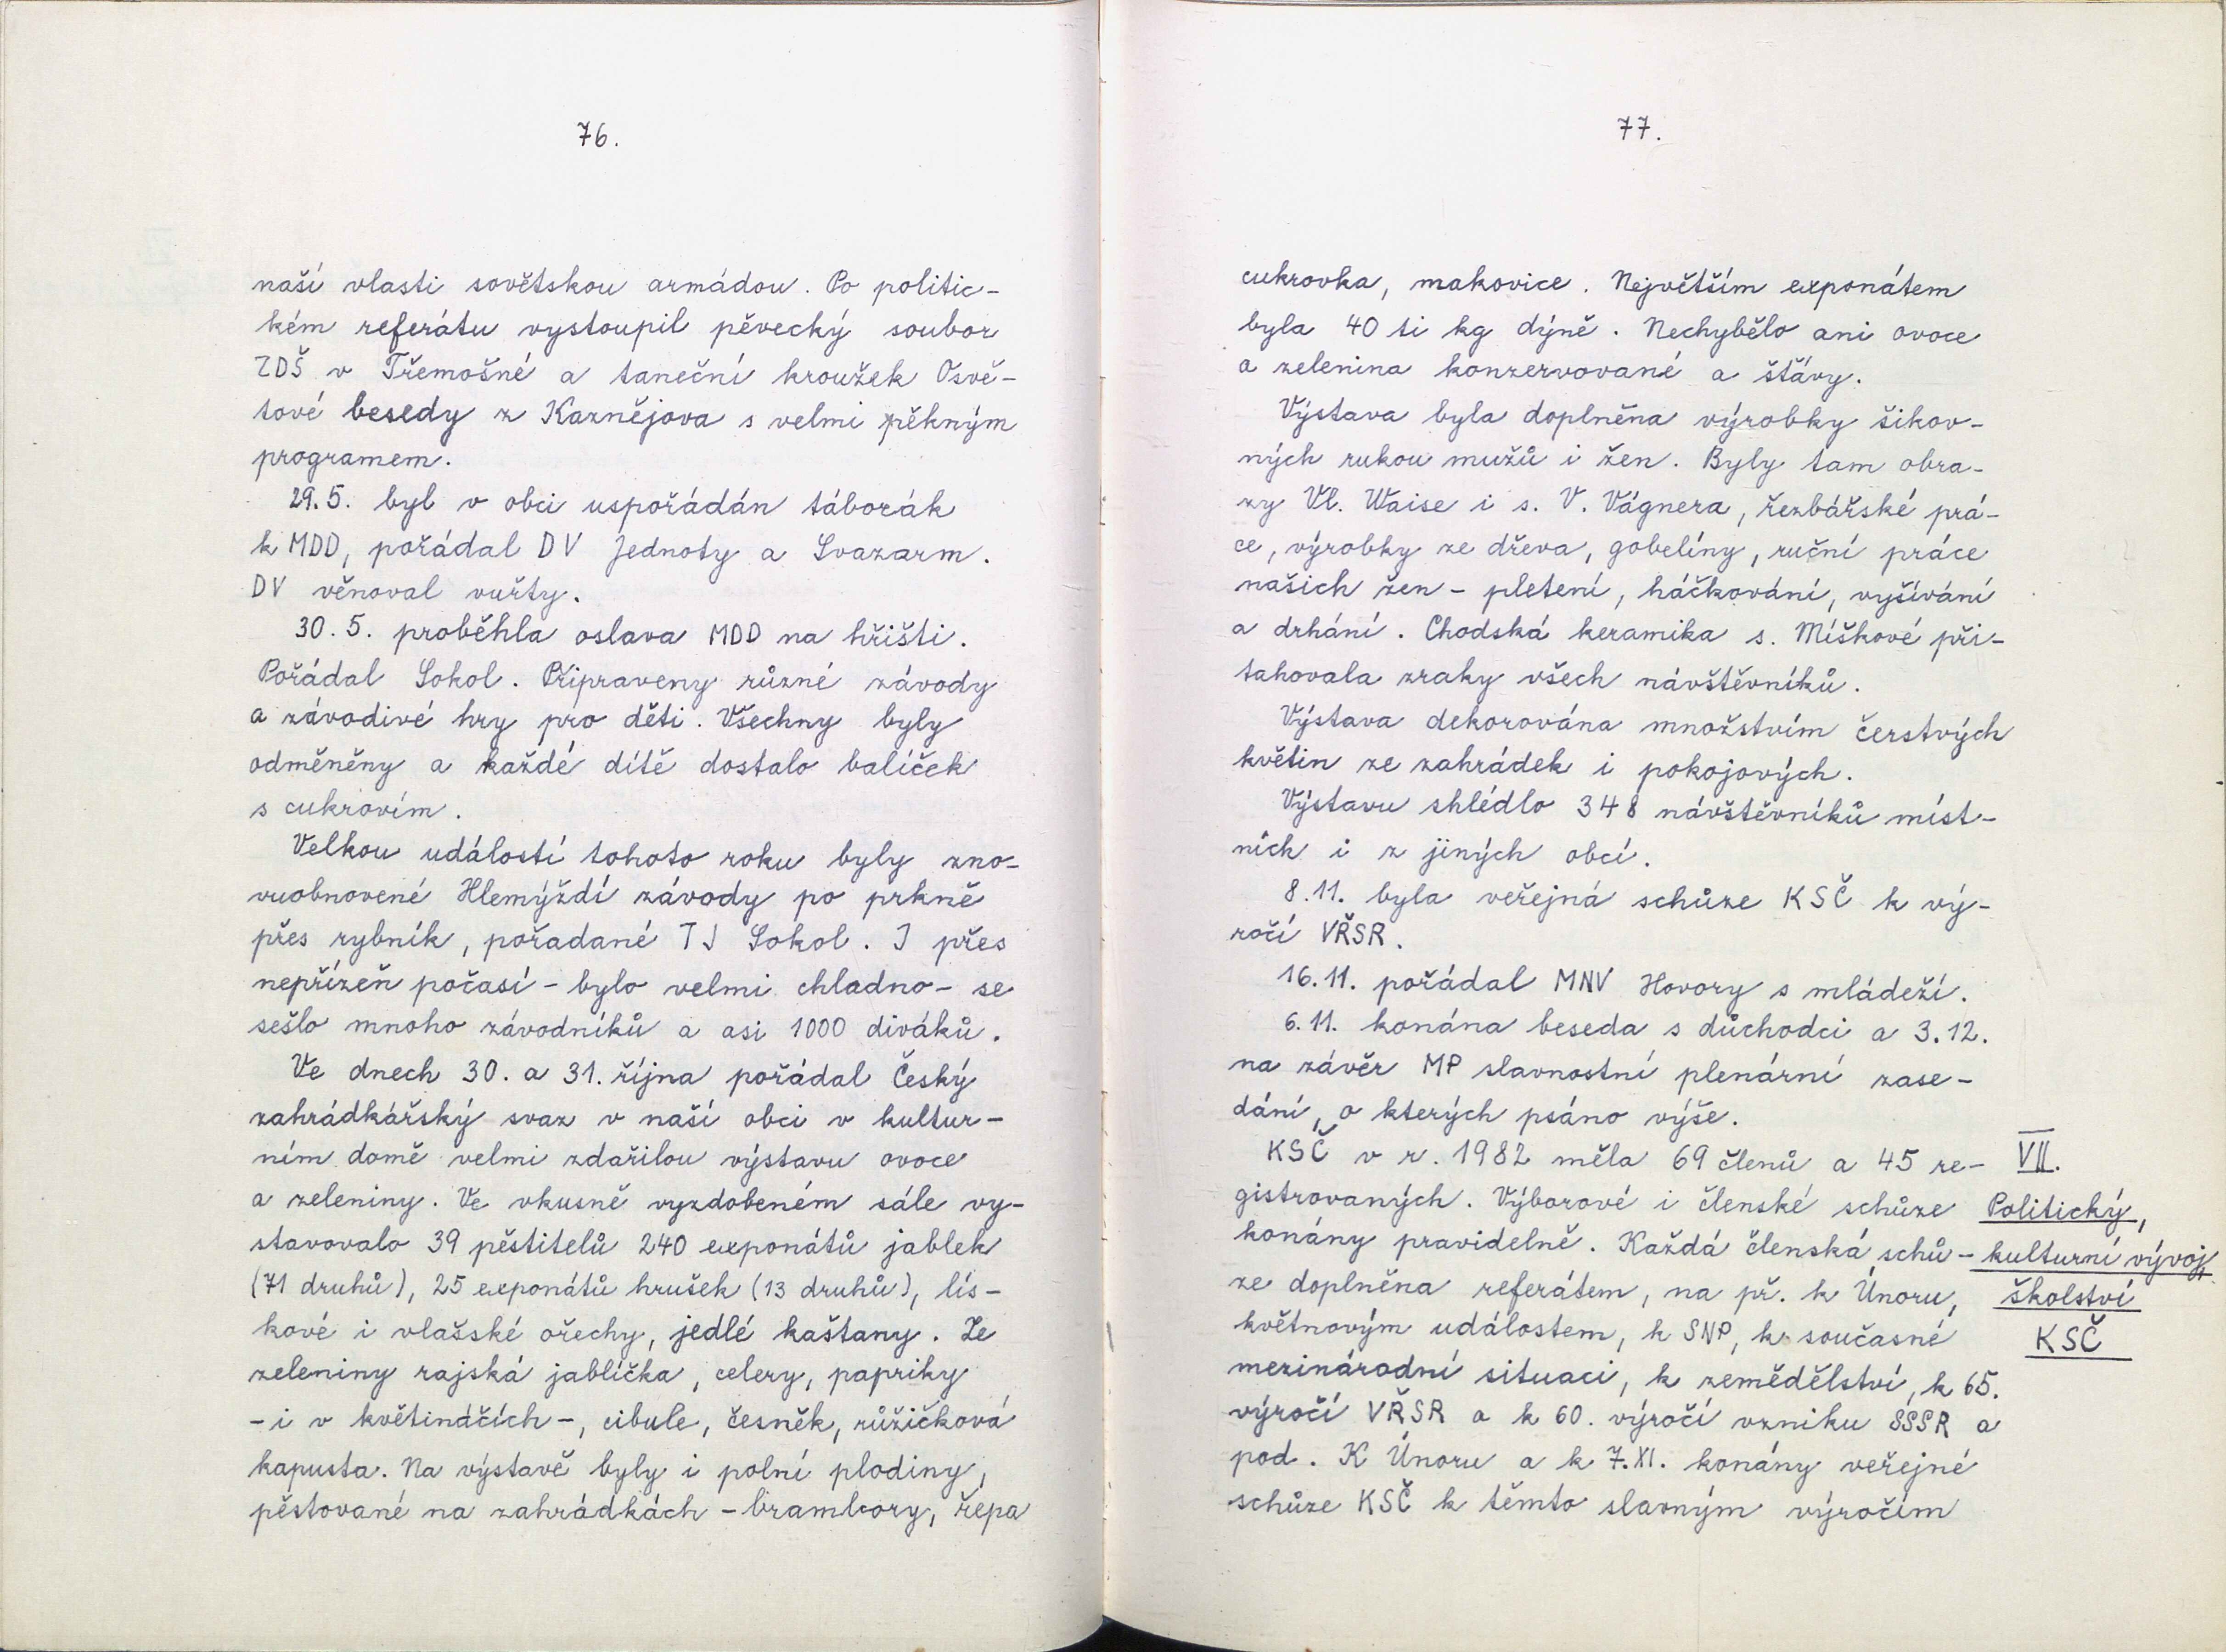 76.
naší vlasti sovětskou armádou. Po politic-
kém referátu vystoupil pěvecký soubor
ZDŠ v Třemošné a taneční kroužek Osvě-
tové besedy z Kaznějova s velmi pěkným
programem.
29.5. byl v obci uspořádán táborák
k MDD, pořádal DV Jednoty a Svazarm.
DV věnoval vuřty.
30.5. proběhla oslava MDD na hřišti.
Pořádal Sokol. Připraveny různé závody
a závodivé hry pro děti. Všechny byly
odměněny a každé dítě dostalo balíček
s cukrovím.
Velkou událostí tohoto roku byly zno-
vuobnovené Hlemýždí závody po prkně
přes rybník, pořadané TJ Sokol. I přes
nepřízeň počasí - bylo velmi chladno - se
sešlo mnoho závodníků a asi 1000 diváků.
Ve dnech 30. a 31. října pořádal Český
zahrádkářský svaz v naší obci v kultur-
ním domě velmi zdařilou výstavu ovoce
a zeleniny. Ve vkusně vyzdobeném sále vy-
stavovalo 39 pěstitelů 240 exponátů jablek
(71 druhů), 25 exponátů hrušek (13 druhů), lís-
kové i vlašské ořechy, jedlé kaštany. Ze
zeleniny rajská jablíčka, celery, papriky
- i v květináčích -, cibule, česněk, růžičková
kapusta. Na výstavě byly i polní plodiny,
pěstované na zahrádkách - brambory, řepa
77.
cukrovka, makovice. Největším exponátem
byla 40 ti kg dýně. Nechybělo ani ovoce
a zelenina konzervované a šťávy.
Výstava byla doplněna výrobky šikov-
ných rukou mužů i žen. Byly tam obra-
zy Vl. Waise i s. V. Vágnera, řezbářské prá-
ce, výrobky ze dřeva, gobelíny, ruční práce
našich žen - pletení, háčkování, vyšívání
a drhání. Chodská keramika s. Míškové při-
tahovala zraky všech návštěvníků.
Výstava dekorována množstvím čerstvých
květin ze zahrádek i pokojových.
Výstavu shlédlo 348 návštěvníků míst-
ních i z jiných obcí.
8.11. byla veřejná schůze KSČ k vý-
ročí VŘSR.
16.11. pořádal MNV Hovory s mládeží.
6.11. konána beseda s důchodci a 3.12.
na závěr MP slavnostní plenární zase-
dání, o kterých psáno výše.
KSČ v r. 1982 měla 69 členů a 45 re-
gistrovaných. Výborové i členské schůze
konány pravidelně. Každá členská schů-
ze doplněna referátem, na př. k Únoru,
květnovým událostem, k SNP, k současné
mezinárodní situaci, k zemědělství, k 65.
výročí VŘSR a k 60. výročí vzniku SSSR a
pod. K Únoru a k 7.XI. konány veřejné
schůze KSČ k těmto slavným výročím
VII.
Politický,
kulturní vývoj,
školství
KSČ